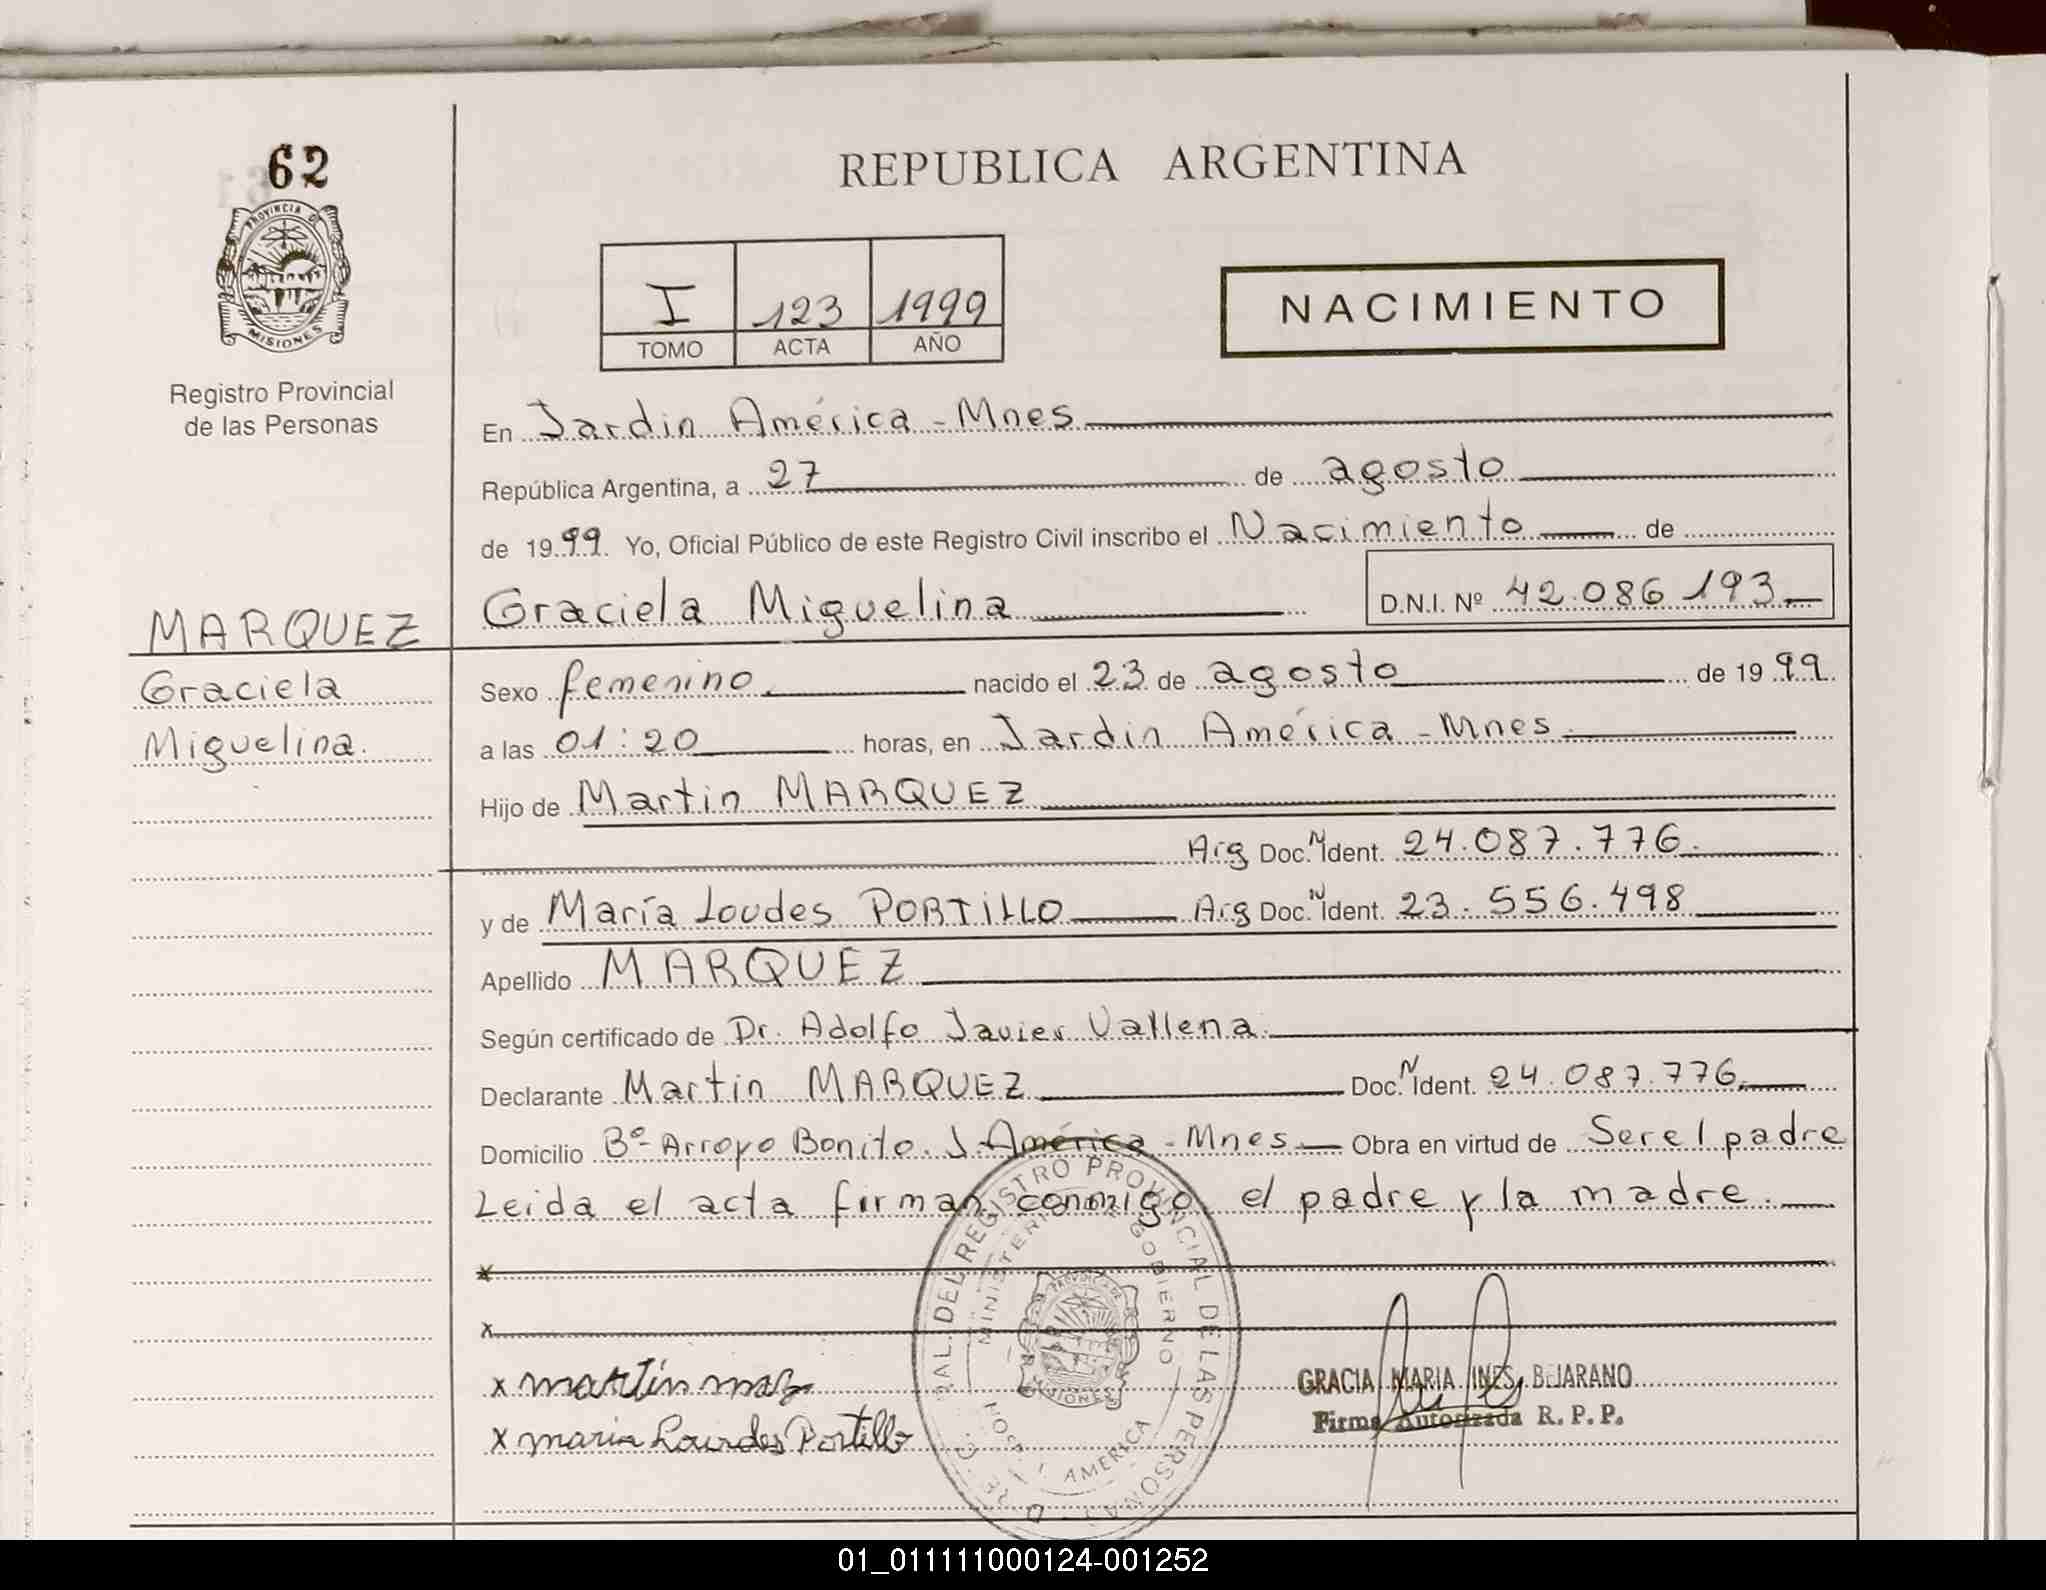 62
PROVINCIA DE
MISIONES
Registro Provincial
de las Personas
REPUBLICA ARGENTINA
I 123 1999
TOMO ACTA AÑO
NACIMIENTO
En Jardin América - Mnes
República Argentina, a 27 de agosto
de 1999. Yo, Oficial Público de este Registro Civil inscribo el Nacimiento de
Graciela Miguelina D.N.I. Nº 42.086.193
MARQUEZ
Graciela
Miguelina.
Sexo femenino. nacido el 23 de agosto de 1999.
a las 01:20 horas, en Jardin América - Mnes.
Hijo de Martin MARQUEZ
Arg Doc. N Ident. 24.087.776.
y de María Loudes PORTILLO Arg Doc. N Ident. 23.556.498
Apellido MARQUEZ
Según certificado de Dr. Adolfo Javier Vallena.
Declarante Martin MARQUEZ Doc. N Ident. 24.087.776.
Domicilio Bº- Arroyo Bonito. J. América - Mnes. Obra en virtud de Ser el padre
Leida el acta firman conmigo el padre y la madre.
x
x
x martin
x maria Lourdes Portillo
GRACIA MARIA INES BEJARANO
Firma Autorizada R.P.P.
DEL REGISTRO PROVINCIAL DE LAS PERSONAS
MINISTERIO GOBIERNO
PROVINCIA DE
MISIONES
AMERICA
01_011111000124-001252